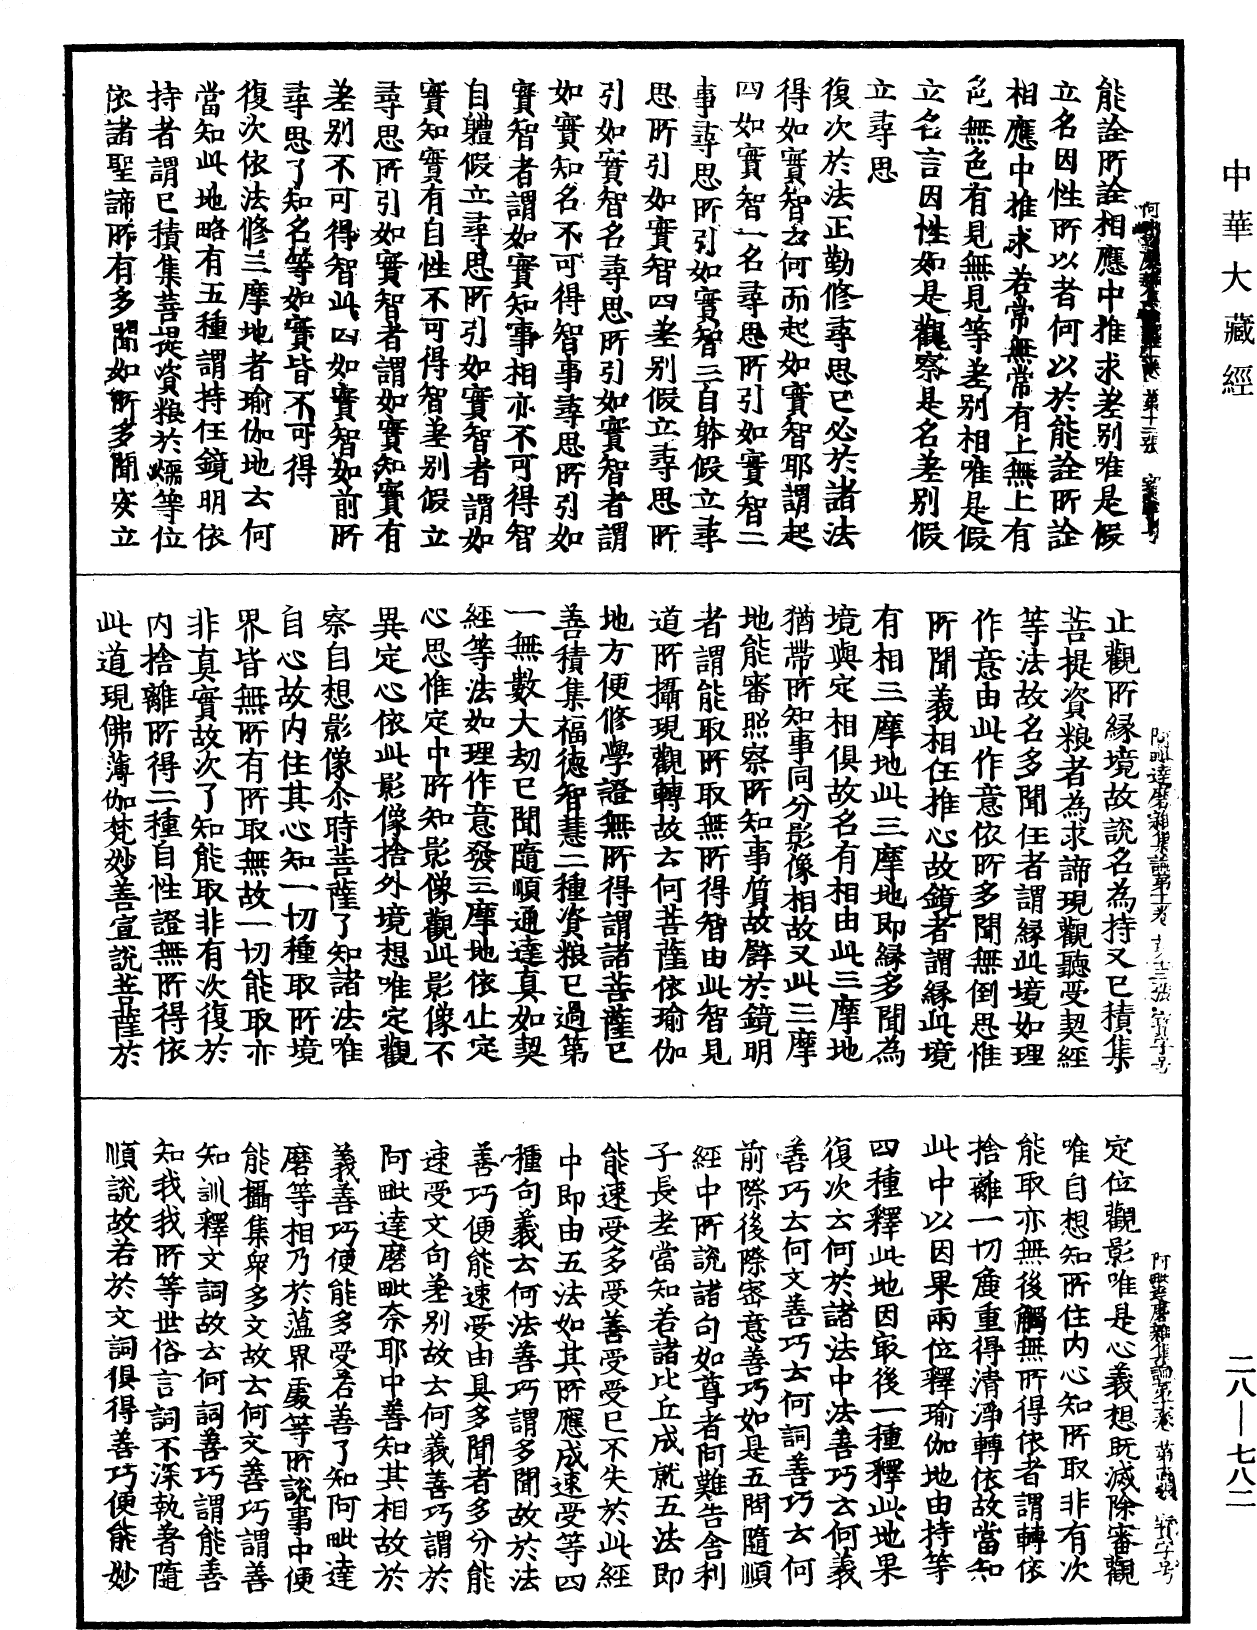 中華大藏經
能詮所詮相應中推求差別唯是假
立名因性所以者何以於能詮所詮
相應中推求若常無常有上無上有
色無色有見無見等差別相唯是假
立名言因性如是觀察是名差別假
立尋思
復次於法正勤修尋思已必於諸法
得如實智云何而起如實智耶謂起
四如實智一名尋思所引如實智二
事尋思所引如實智三自躰假立尋
思所引如實智四差别假立尋思所
引如實智名尋思所引如實智者謂
如實知名不可得智事尋思所引如
實智者謂如實知事相亦不可得智
自軆假立尋思所引如實智者謂如
實知實有自性不可得智差别假立
尋思所引如實智者謂如實知實有
差别不可得智此四如實智如前所
尋思了知名等如實皆不可得
復次依法修三摩地者瑜伽地云何
當知此地略有五種謂持任鏡明依
持者謂已積集菩提資粮於煗等位
依諸聖諦所有多聞如所多聞安立
止觀所緣境故說名為持又已積集
菩提資粮者為求諦現觀聽受契經
等法故名多聞任者謂緣此境如理
作意由此作意依所多聞無倒思惟
所聞義相任推心故鏡者謂緣此境
有相三摩地此三摩地即緣多聞為
境與定相俱故名有相由此三摩地
猶帶所知事同分影像相故又此三摩
地能審照察所知事質故譬於鏡明
者謂能取所取無所得智由此智見
道所攝現觀轉故云何菩薩依瑜伽
地方便修學證無所得謂諸菩薩已
善積集福德智慧二種資粮已過第
一無數大劫已聞隨順通達真如契
經等法如理作意發三摩地依止定
心思惟定中所知影像觀此影像不
異定心依此影像捨外境想唯定觀
察自想影像尒時菩薩了知諸法唯
自心故內住其心知一切種取所境
界皆無所有所取無故一切能取亦
非真實故次了知能取非有次復於
內捨離所得二種自性證無所得依
此道現佛薄伽梵妙善宣說菩薩於
定位觀影唯是心義想旣滅除審觀
唯自想知所住內心知所取非有次
能取亦無後觸無所得依者謂轉依
捨離一切麁重得清淨轉依故當知
此中以因果兩位釋瑜伽地由持等
四種釋此地因㝡後一種釋此地果
復次云何於諸法中法善巧云何義
善巧云何文善巧云何詞善巧云何
前際後際密意善巧如是五問隨順
經中所說諸句如尊者阿難告舍利
子長老當知若諸比丘成就五法即
能速受多受善受受已不失於此經
中即由五法如其所應成速受等四
種句義云何法善巧謂多聞故於法
善巧便能速受由具多聞者多分能
速受文句差别故云何義善巧謂於
阿毗達磨毗奈耶中善知其相故於
義善巧便能多受若善了知阿毗達
磨等相乃於薀界處等所說事中便
能攝集衆多文故云何文善巧謂善
知訓釋文詞故云何詞善巧謂能善
知我我所等世俗言詞不深執著隨
順說故若於文詞俱得善巧便能妙
二八—七八二